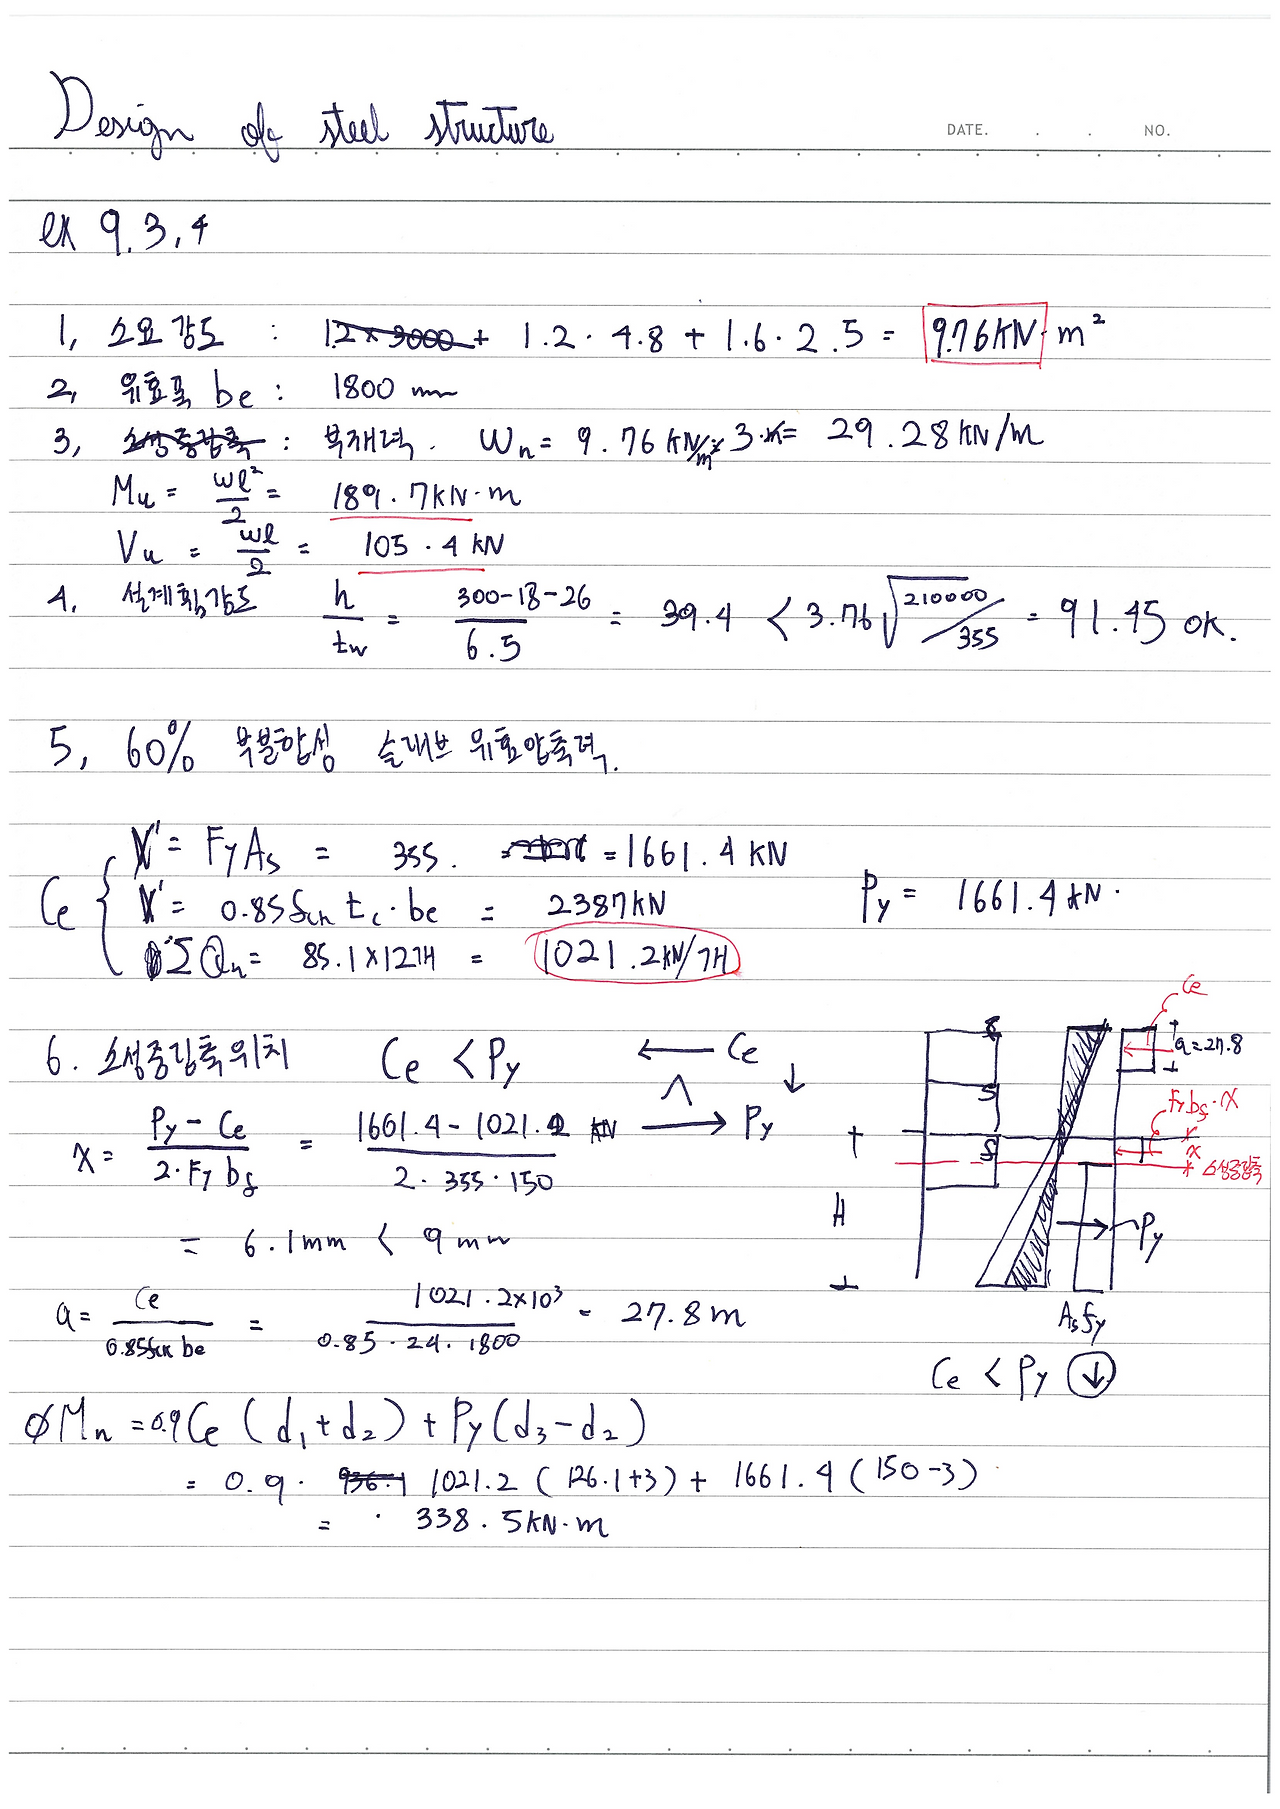 Design of steel structure
DATE. . . NO.
ex 9.3.4
1, 소요강도 : 1.2×3000 + 1.2 · 4.8 + 1.6 · 2.5 = 9.76KN · m²
2, 유효폭 be : 1800 mm
3, 소성중립축 : 부재력. Wn = 9.76 KN/m² · 3 · m = 29.28 KN/m
Mu = wl²/2 = 189.7KN·m
Vu = wl/2 = 105.4 kN
4. 설계휨강도 h/tw = 300-18-26/6.5 = 39.4 < 3.76√210000/355 = 91.45 OK.
5, 60% 부분합성 슬래브 유효압축력.
Ce
V' = FyAs = 355. = 1661.4 KN
V' = 0.85fck tc · be = 2387KN
ΣQn = 85.1×12개 = 1021.2KN/개
Py = 1661.4 kN.
6. 소성중립축위치 Ce < Py ← Ce ↓
∧
→ Py
x = Py - Ce/2·Fy bf = 1661.4 - 1021.2 KN/2 · 355 · 150
= 6.1mm < 9mm
a = Ce/0.85fck be = 1021.2×10³/0.85 · 24 · 1800 = 27.8m
Ce
a=27.8
Fy bf · x
x
소성중립축
H
Py
Asfy
Ce < Py ↓
ØMn = 0.9Ce (d₁+d₂) + Py(d₃-d₂)
= 0.9 · 936.1 1021.2 (126.1+3) + 1661.4 (150-3)
= · 338.5KN·m